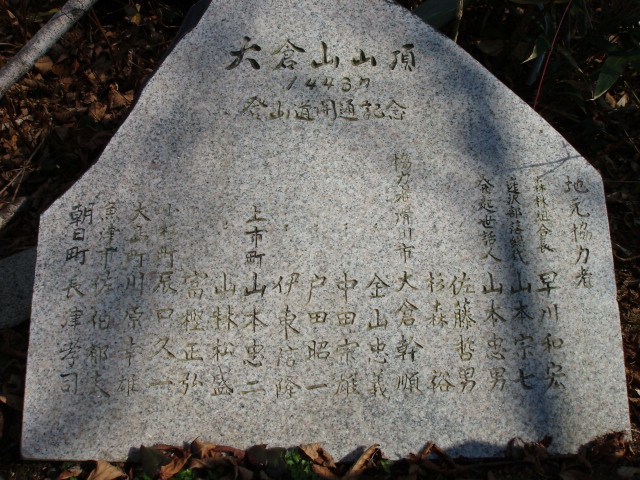 大倉山山頂
1443m
登山道開通記念
地元協力者
森林組合長 早川和宏
蓬沢部落総代 山本宗七
発起世話人 山本忠男
佐藤哲男
杉森 裕
協力者滑川市 大倉幹順
金山忠義
中田宗雄
戸田昭一
伊東信隆
上市町 山本忠二
山林松盛
富樫正弘
辰口久一
大島町 川原幸雄
魚津市 佐伯郁夫
朝日町 長津孝司